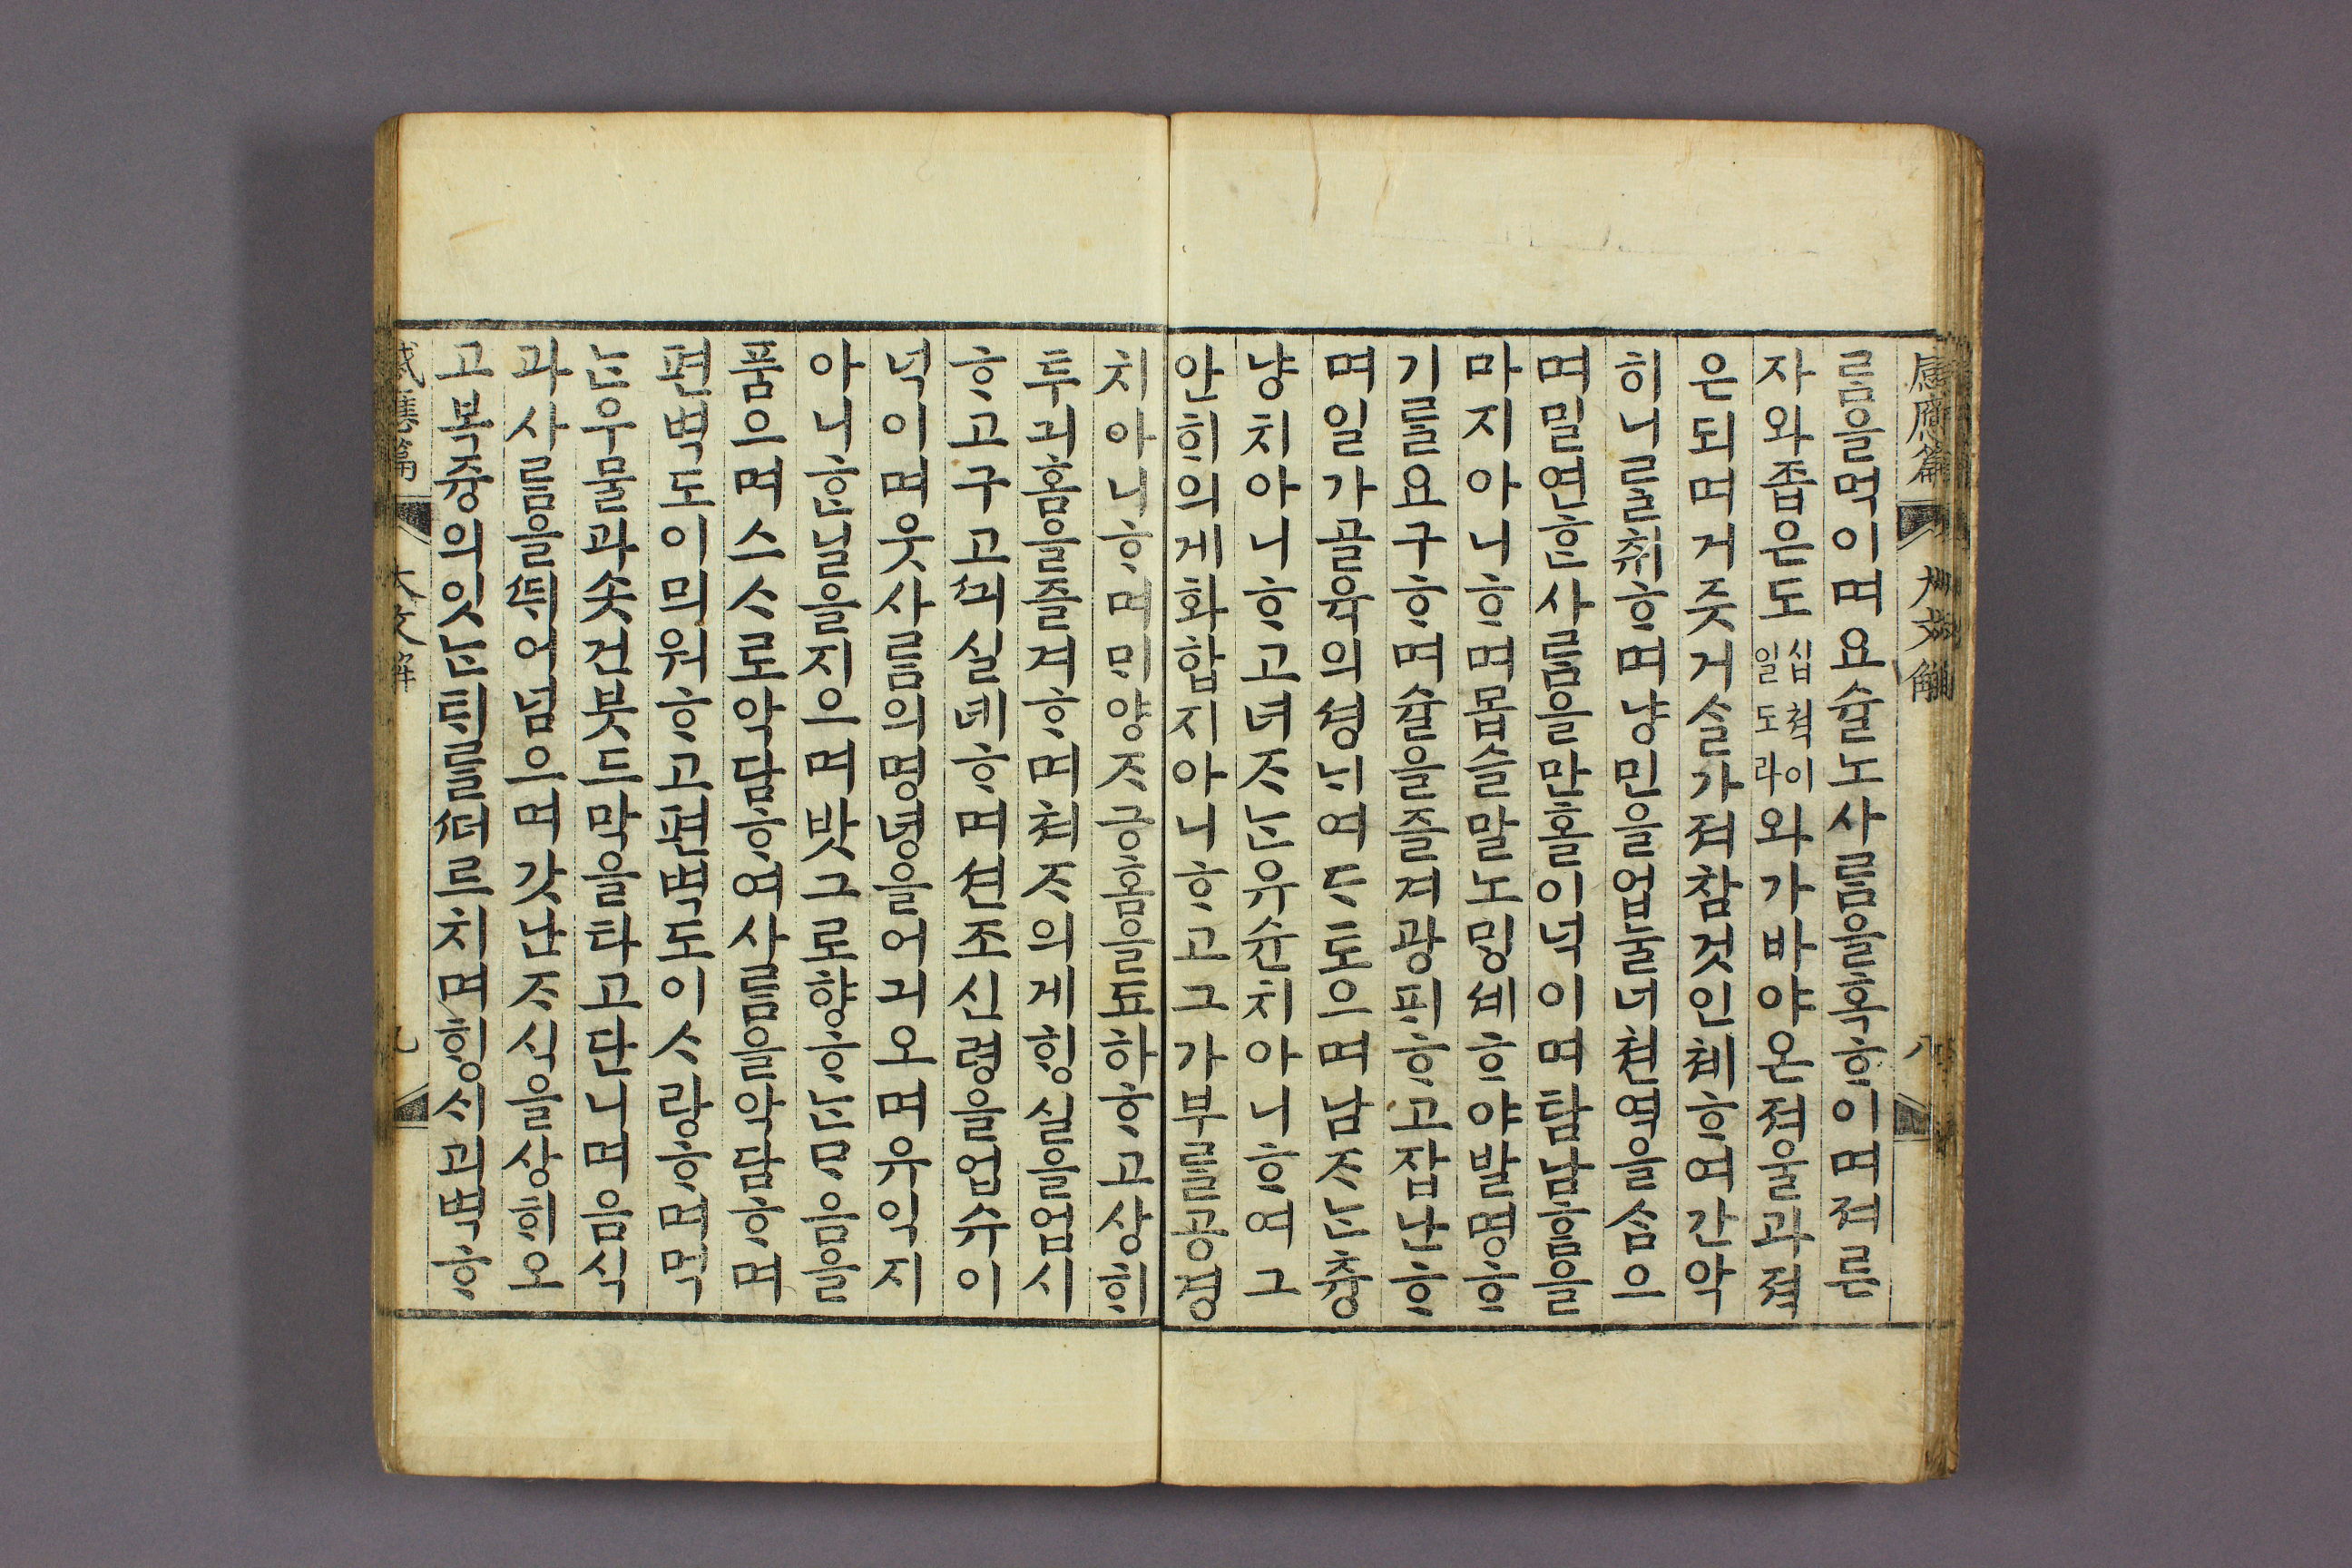 感應篇 大文解 八
ᄅᆞᆷ을먹이며요슐노사ᄅᆞᆷ을혹ᄒᆞ이며져른
자와좁은도십쳑이일도라와가바야온져울과젹
은되며거즛거슬가져참것인쳬ᄒᆞ여간악
히니ᄅᆞᆯ취ᄒᆞ며냥민을업눌너쳔역을ᄉᆞᆷ으
며밀연ᄒᆞᆫ사ᄅᆞᆷ을만홀이넉이며탐남홈을
마지아니ᄒᆞ며몹슬말노ᄆᆡᆼ셰ᄒᆞ야발명ᄒᆞ
기ᄅᆞᆯ요구ᄒᆞ며술을즐겨광픠ᄒᆞ고잡난ᄒᆞ
며일가골육의셩ᄂᆡ여ᄃᆞ토으며남ᄌᆞᄂᆞᆫ츙
냥치아니ᄒᆞ고녀ᄌᆞᄂᆞᆫ유슌치아니ᄒᆞ여그
안희의게화합지아니ᄒᆞ고그가부ᄅᆞᆯ공경
치아니ᄒᆞ며ᄆᆡ양ᄌᆞ긍홈을됴하ᄒᆞ고상ᄒᆡ
투긔홈을즐겨ᄒᆞ며쳐ᄌᆞ의게ᄒᆡᆼ실을업시
ᄒᆞ고구고ᄭᅴ실녜ᄒᆞ며션조신령을업슈이
넉이며웃사ᄅᆞᆷ의명녕을어긔오며유익지
아니ᄒᆞᆫ일을지으며밧그로향ᄒᆞᄂᆞᆫᄆᆞ음을
품으며스ᄉᆞ로악담ᄒᆞ여사ᄅᆞᆷ을악담ᄒᆞ며
편벽도이믜워ᄒᆞ고편벽도이ᄉᆞ랑ᄒᆞ며먹
ᄂᆞᆫ우물과솟건붓드막을타고단니며음식
과사ᄅᆞᆷ을ᄯᅱ어넘으며갓난ᄌᆞ식을상ᄒᆡ오
고복즁의잇ᄂᆞᆫᄐᆡᄅᆞᆯᄯᅥ르치며ᄒᆡᆼᄉᆡ괴벽ᄒᆞ
感應篇 大文解 七